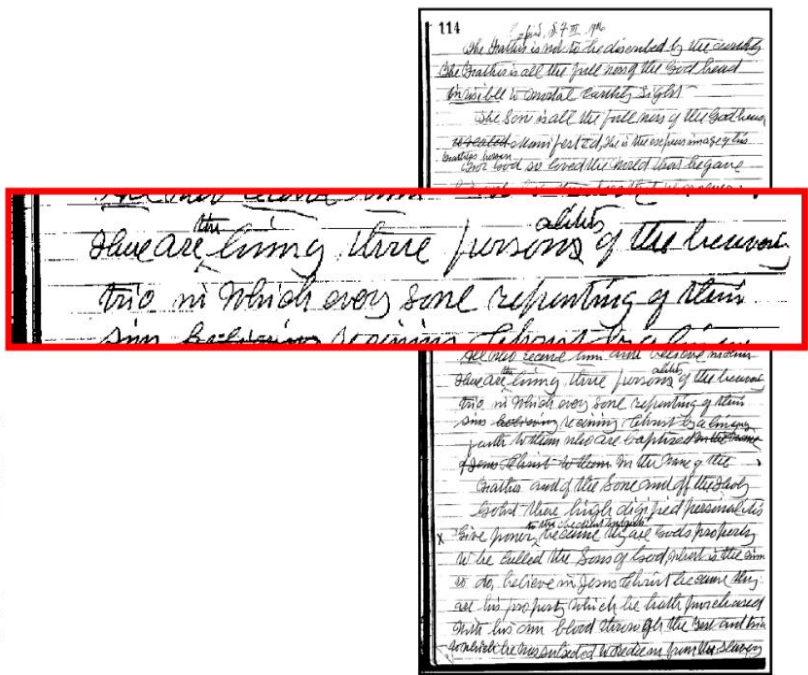 114
The Father is not to be discribed by the earthly
The Father is all the full ness of the God head
invisible to mortal earthly sight
The Son is all the full ness of the Godhead
revealed manifested, he is the express image of his
Fathers person
God so loved the world that he gave
Here are the living three persons alities of the heavenly
trio in which every sone repenting of their
sins believing receiving Christ by a living
All who receive him and believe in him
Here are the living three persons alities of the heavenly
trio in which every sone repenting of their
sins believing receiving Christ by a living
faith to them who are baptised in the name
of Jesus Christ to them in the name of the
Father and of the Sone and off the Holy
Gohst there high digified personalities
to the obedient
X Give power, because they are Gods property
to be called the Sons of God, what is the sinner
to do, believe in Jesus Christ because they
are his property which he hath purchased
with his own blood through the test and trial
to which he was subjected to redeem from the slavery